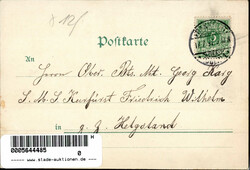 Postkarte
An
Herrn Ober. Bts. Mt. Georg
S.M.S. Kurfürst Friedrich Wilhelm
in
z. Z. Helgoland
0005644485
0
www.slade-auktionen.de